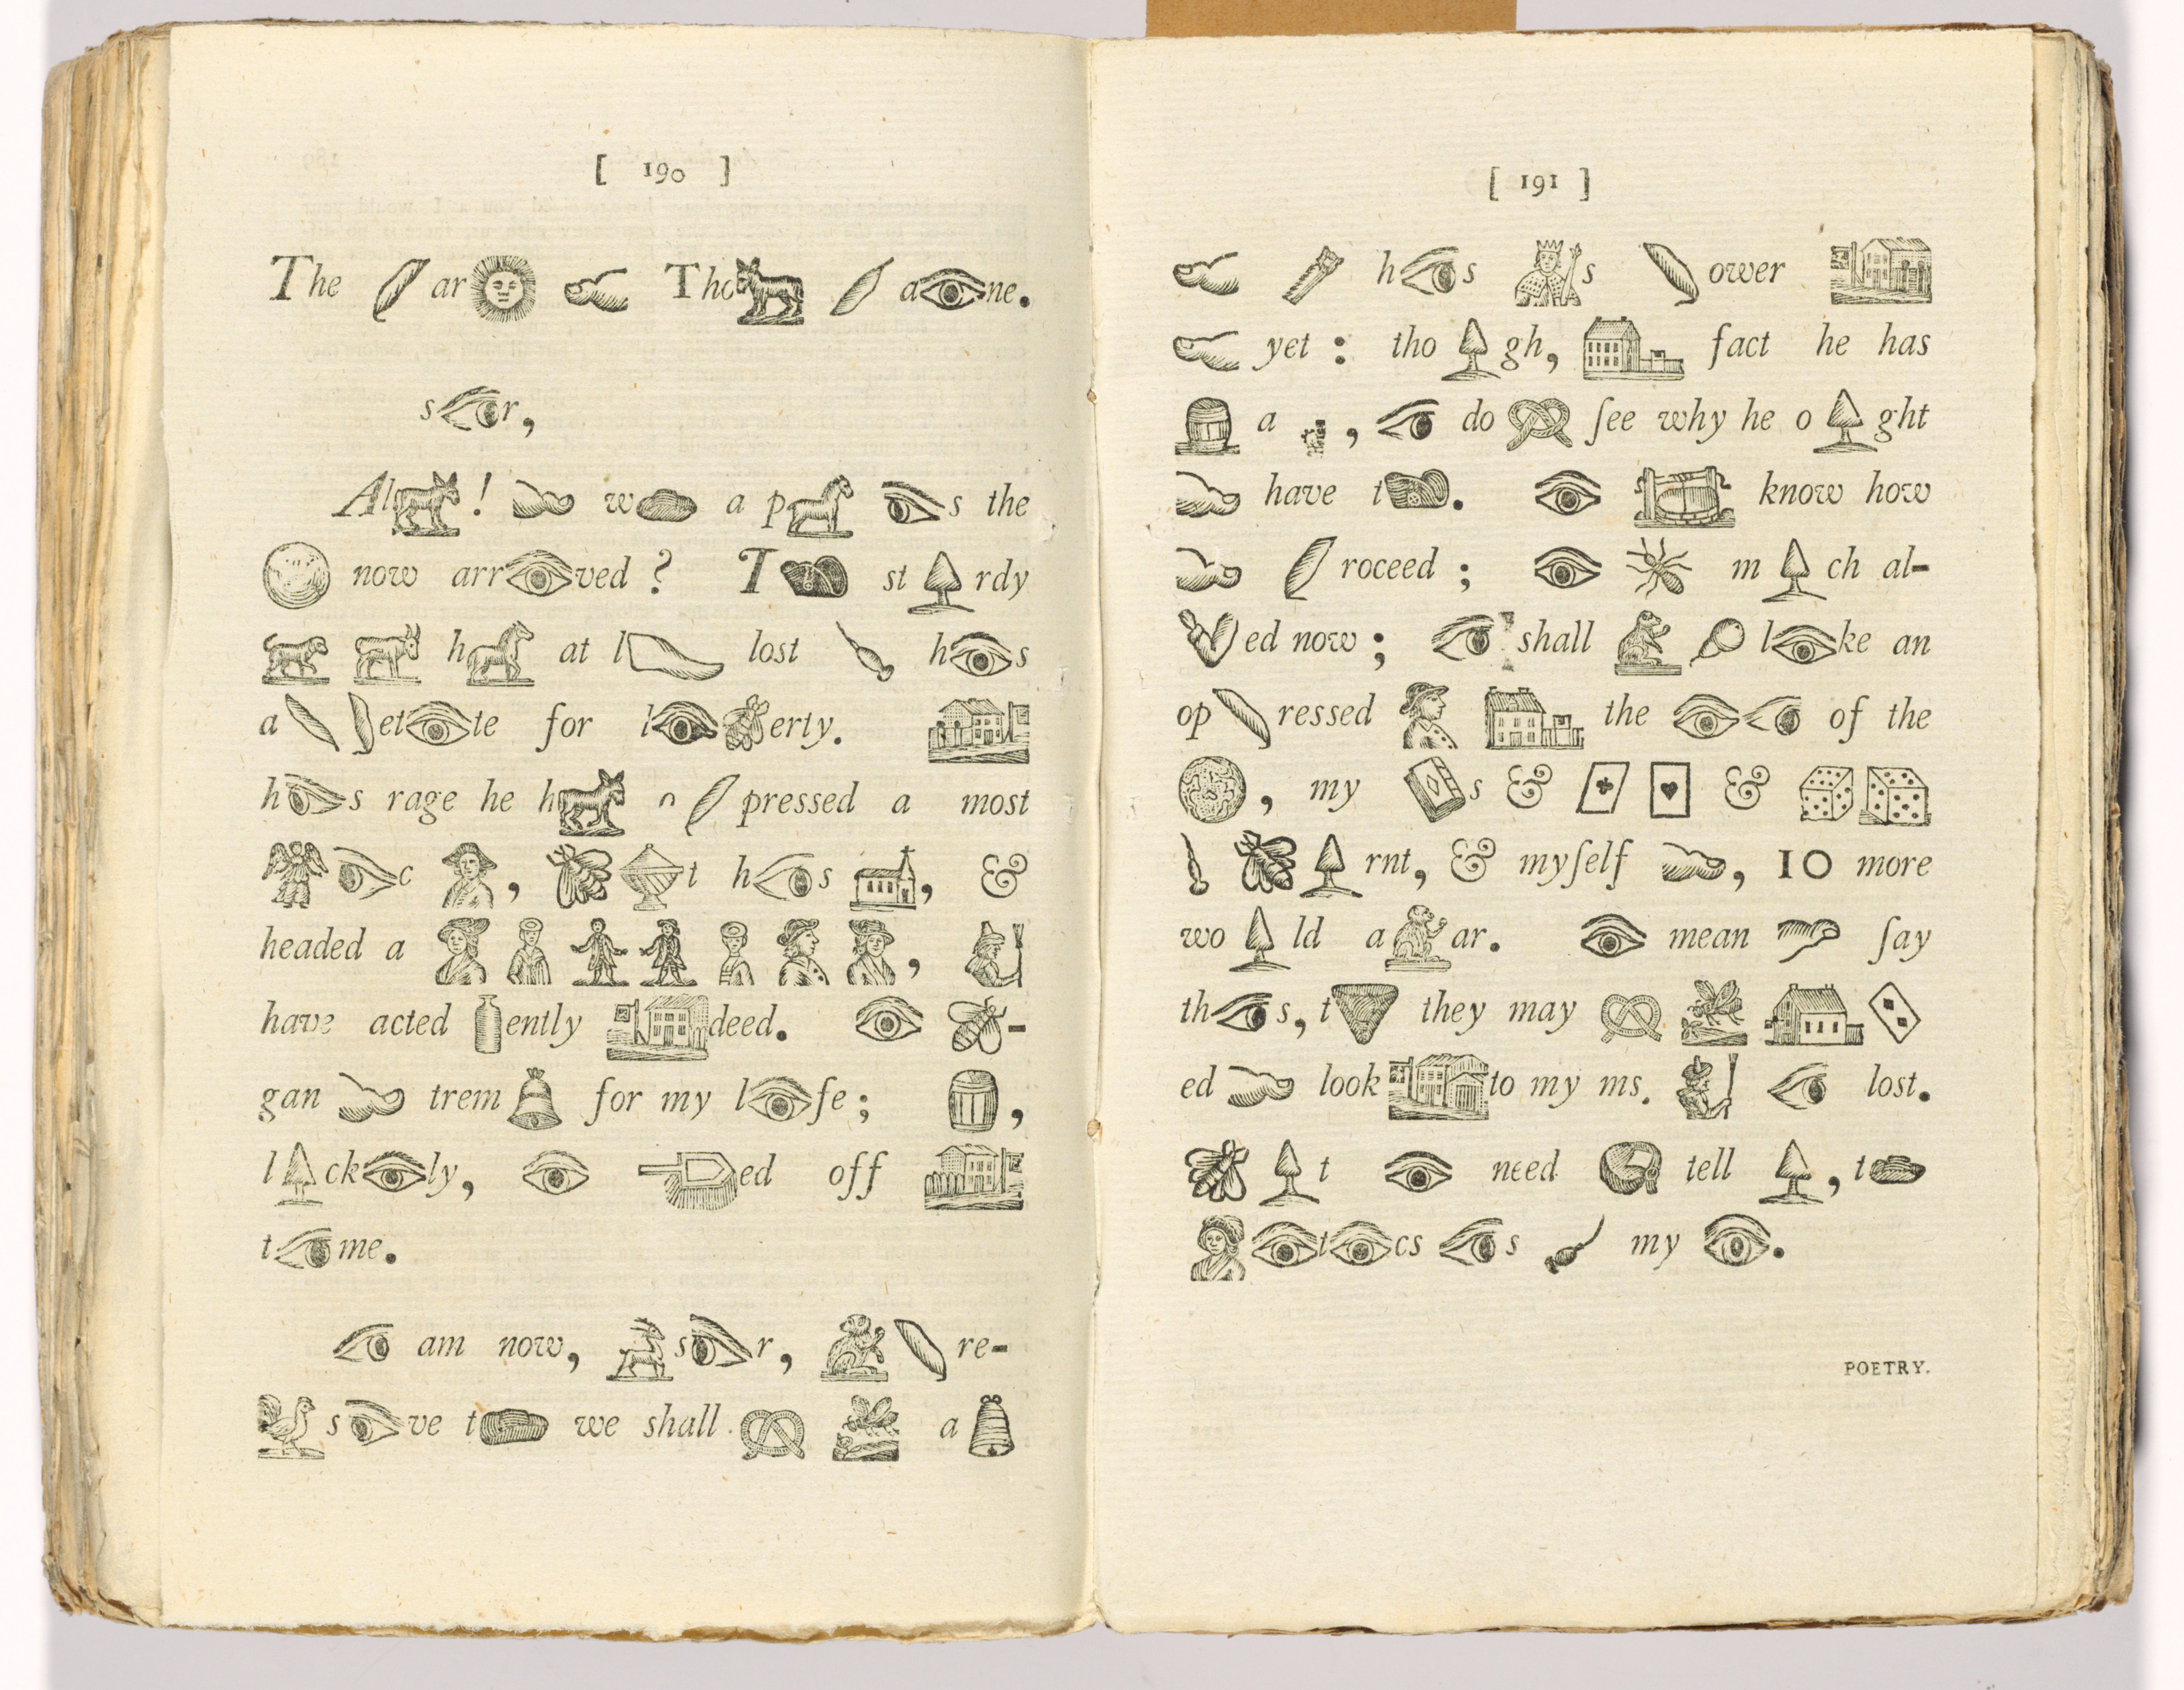 [ 190 ]
The ar Tho a ne.
s r,
Al ! w a p s the
now arr ved ? T st rdy
h at l lost h s
a et te for l erty.
h s rage he h pressed a most
c , t h s , &
headed a ,
have acted ently deed. -
gan trem for my l fe ; ,
l ck ly, ed off
t me.
am now, s r, re-
s ve t we shall a
[ 191 ]
h s s ower
yet : tho gh, fact he has
a , do ſee why he o ght
have t . know how
roceed ; m ch al-
ed now ; shall l ke an
op ressed the of the
, my s & &
rnt, & myſelf , 10 more
wo ld a ar. mean ſay
th s, t they may
ed look to my ms. lost.
t need tell , t
t cs s my .
POETRY.